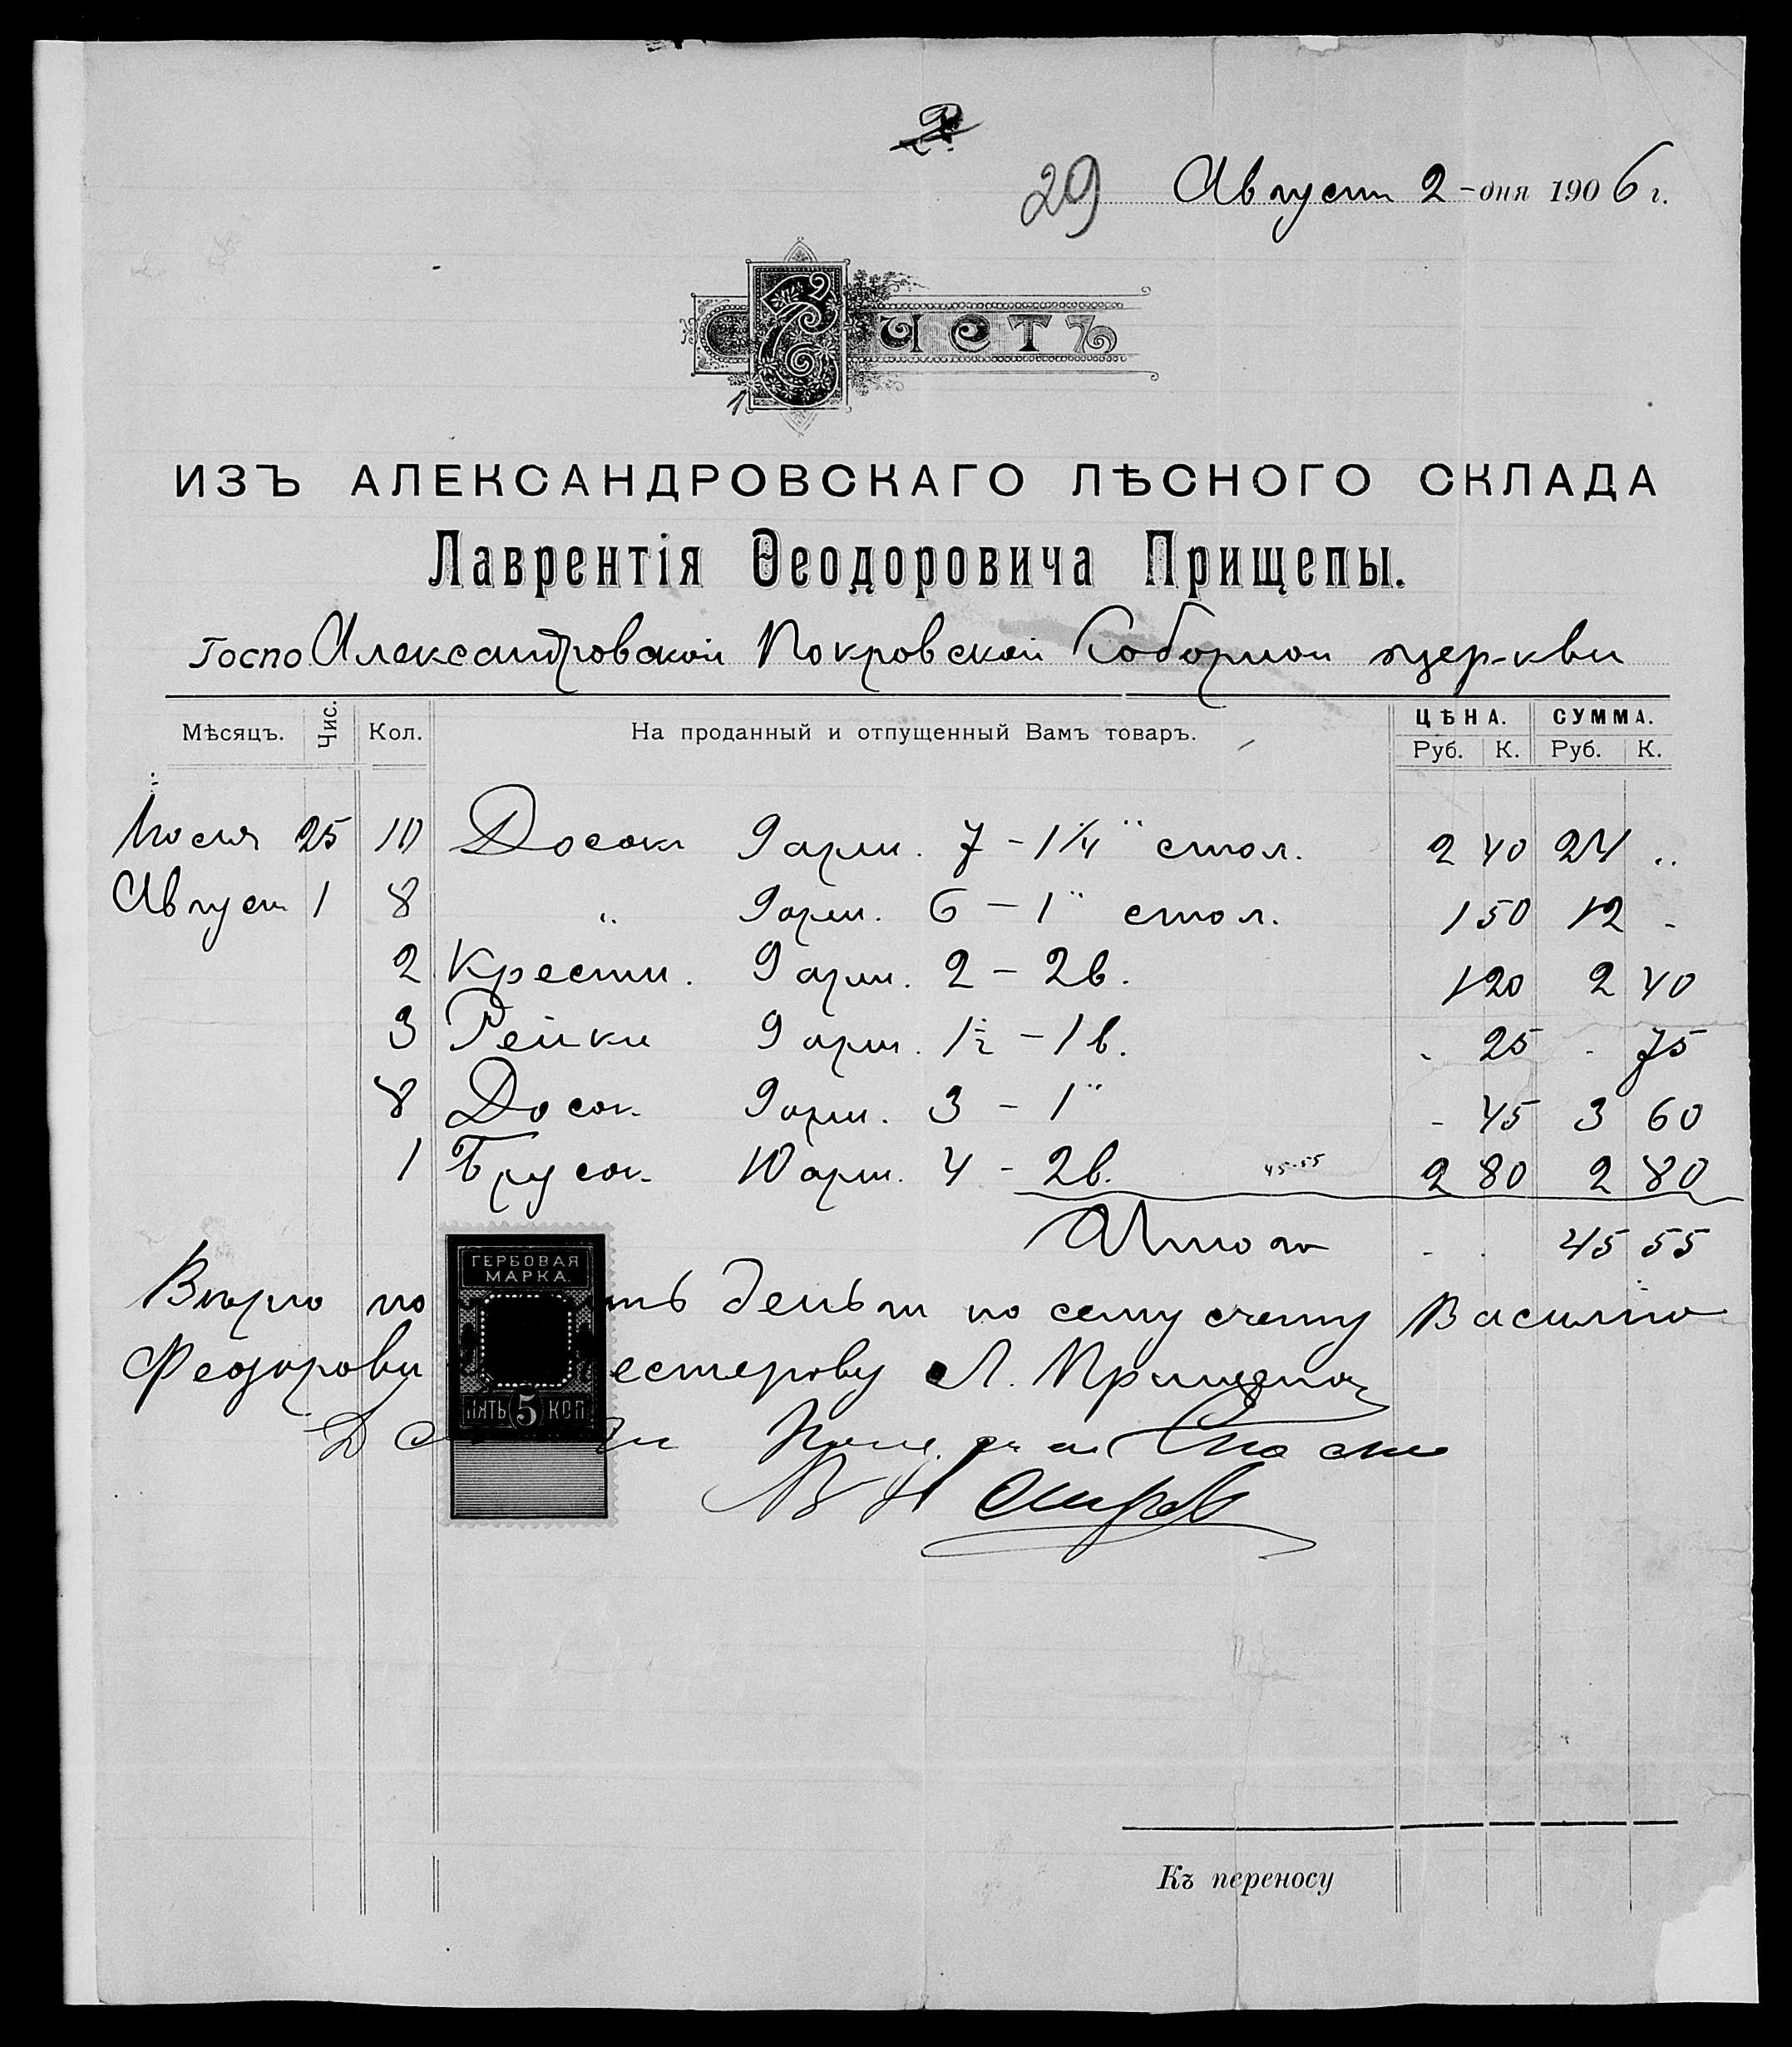 2
29 Август 2 -дня 1906 г.
Счетъ
1
ИЗЪ АЛЕКСАНДРОВСКАГО ЛѢСНОГО СКЛАДА
Лаврентія Ѳеодоровича Прищепы.
Госпо Александровской Покровской Соборной церкви
Мѣсяцъ. Чис. Кол. На проданный и отпущенный Вамъ товаръ. ЦѢНА. СУММА.
Руб. К. Руб. К.
25 10 Досок 9 арш. 7 - 1 1/4" стол. 2 40 24 "
Август 1 8 " 9 арш. 6 - 1" стол. 1 50 12 -
2 Крести. 9 арш. 2 - 2в. 1 20 2 40
3 Рейки 9 арш. 1 1/2 - 1в. - 25 - 75
8 Досок 9 арш. 3 - 1" - 45 3 60
1 Брусок 10 арш. 4 - 2в. 45-55 2 80 2 80
Итого - - 45 55
Вѣрю по ть деньги по сему счету Василию
Феодорови естерову Л. Прищепа
ГЕРБОВАЯ
МАРКА.
ПЯТЬ 5 КОП
Къ переносу